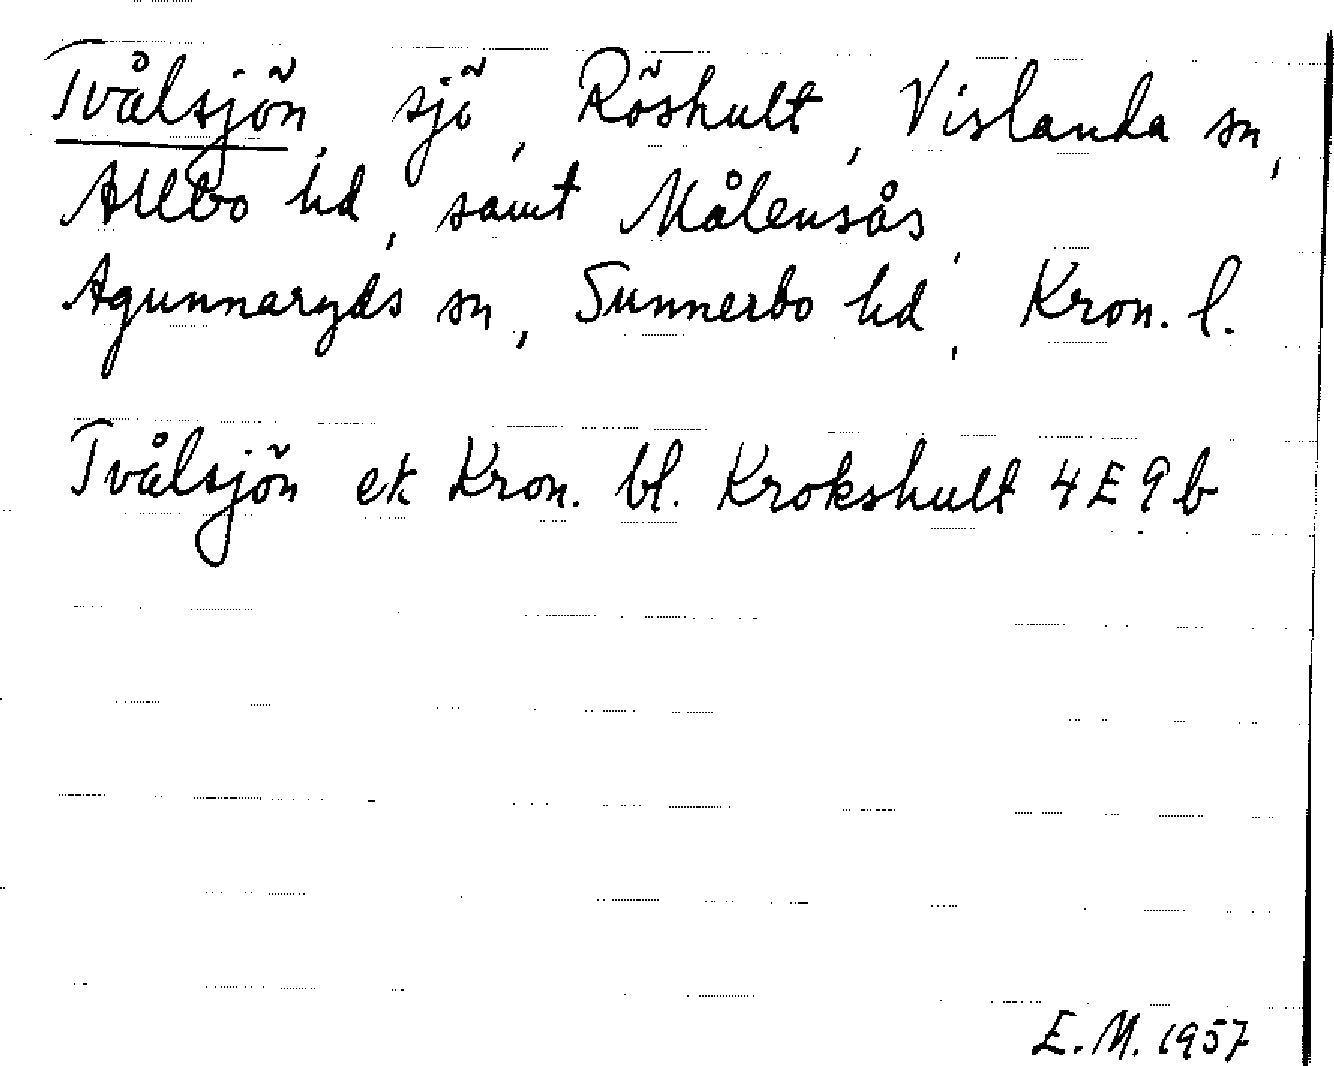 Tvålsjön, sjö, Röshult, Vislanda sn,
Allbo hd, samt Målensås,
Agunnaryds sn, Sunnerbo hd, Kron. l.
Tvålsjön ek Kron. bl. Krokshult 4E9b
E.M. 1957